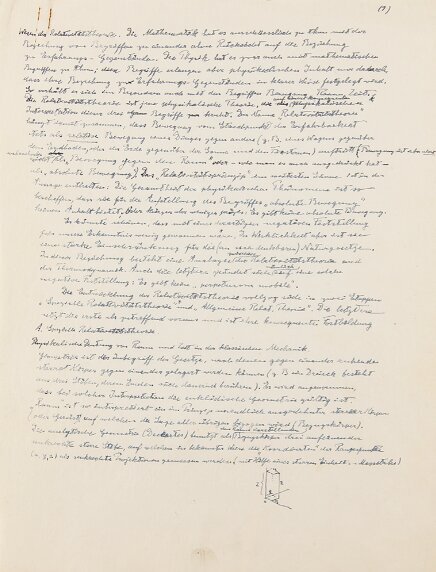 (1)
Wesen der Relativitätstheorie. Die Mathematik hat es ausschliesslich zu thun mit der
Beziehung von Begriffen zu einander ohne Rücksicht auf die Beziehung
zu Erfahrungs-Gegenständen. Die Physik hat es zwar auch mit mathematischen
Begriffen zu thun; diese Begriffe erlangen aber physikalischen Inhalt nur dadurch
dass ihre Beziehung zu Erfahrungs-Gegenständen in klarer Weise festgelegt wird.
So verhält es sich im Besonderen auch mit den Begriffen Bewegung, Raum, Zeit.
Die Relativitätstheorie ist jene physikalische Theorie, physikalischen
Interpretation dieser drei Begriffe beruht. Der Name Relativitätstheorie
hängt damit zusammen, dass Bewegung vom Standpunkt der Erfahrbarkeit
stets als relative Bewegung eines Dinges gegen andere (z. B. eines Wagens gegenüber
dem Erdboden oder der Erde gegenüber der Sonne und den Fixsternen) auftritt. (Bewegung ist aber nicht
als Bewegung gegen den Raum oder - wie man es auch ausgedrückt hat -
als "absolute Bewegung". Das "Relativitätsprinzip" im weitesten Sinne ist in der
Aussage enthalten: Die Gesamtheit der physikalischen Phänomene ist so
beschaffen, dass sie für die Einführung des Begriffes "absolute Bewegung"
keinen Anhalt bietet. Oder kürzer aber weniger präzis: Es gibt keine absolute Bewegung.
Es könnte scheinen, dass mit einer derartigen negativen Feststellung
für unsere Erkenntnis wenig gewonnen wäre. In Wirklichkeit aber ist sie
eine starke Einschränkung für die (an sich denkbaren) Naturgesetze.
In dieser Beziehung besteht eine Analogie zwischen Relativitätstheorie und
der Thermodynamik. Auch die letztere gründet sich auf eine solche
negative Feststellung: "Es gibt kein perpetuum mobile".
Die Entwicklung der Relativitätstheorie vollzog sich in zwei Etappen
"Spezielle Relativitätstheorie" und "Allgemeine Relat. Theorie". Die letztere
setzt die erste als zutreffend voraus und ist ihre konsequente Fortbildung
A. Spezielle Relativitätstheorie.
Physikalische Deutung von Raum und Zeit in der klassischen Mechanik
Geometrie ist der Inbegriff der Gesetze, nach denen gegen einander ruhende
starre Körper gegen einander gelagert werden können (z. B. ein Dreieck besteht
aus drei Stäben, deren Enden sich dauernd berühren). Es wird angenommen,
dass bei solcher Interpretation die euklidische Geometrie gültig ist.
Raum ist so interpretiert ein im Prinzip unendlich ausgedehnter starrer Körper
(oder Gerüst), auf welchen die Lage aller übrigen bezogen wird (Bezugskörper).
Die analytische Geometrie (Descartes) benutzt als Bezugskörper drei aufeinander
senkrechte starre Stäbe, auf welchen die "Koordinaten" der Raumpunkte
(x, y, z) als senkrechte Projektionen gemessen werden (mit Hilfe eines starren Einheits-Massstabes)